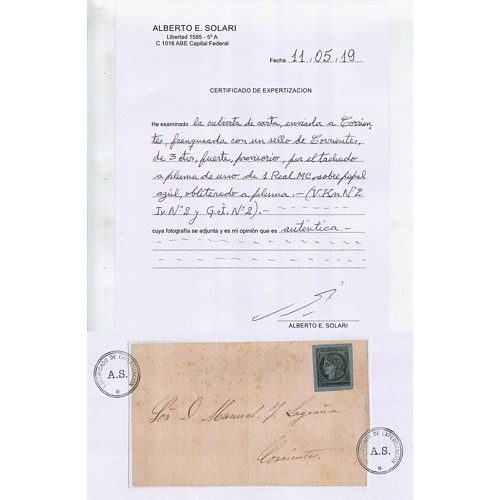 ALBERTO E. SOLARI
Libertad 1595 - 5º A
C 1016 ABE Capital Federal
Fecha 11.05.19
CERTIFICADO DE EXPERTIZACION
He examinado la cubierta de carta, enviada a Corrien-
tes, franqueada con un sello de Corrientes,
de 3 ctvs, fuerte, provisorio, por el tachado
a pluma de uno de 1 Real MC, sobre papel
azúl, obliterado a pluma.- (V.Kn Nº2
Iv. Nº2 y G.J. Nº2).-
cuya fotografía se adjunta y es mi opinión que es auténtica.-
ALBERTO E. SOLARI
CERTIFICADO DE EXPERTIZACION
A.S.
Sor. D. Manuel J. Lagraña
Corrientes.
CERTIFICADO DE EXPERTIZACION
A.S.